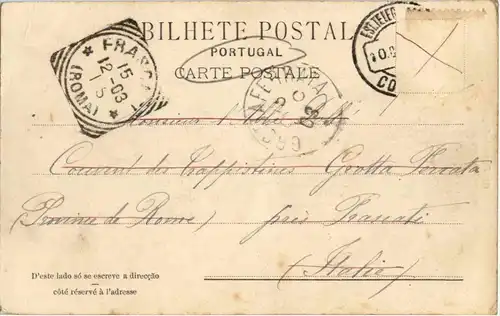 BILHETE POSTAL
PORTUGAL
CARTE POSTALE
FRASCATI
15
12 03
1 S
(ROMA)
EST. TELEG
CO
03
Monsieur l'Abbé
Couvent des Trappistines Grotta Ferrata
(Province de Rome) près Frascati
(Italie)
D'este lado só se escreve a direcção
côté réservé à l'adresse